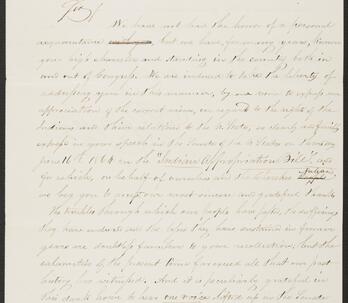 Sir
We have not had the honor of a personal
acquaintance, but we have, for many years, known
your high character and standing in the country, both in
and out of Congress. We are induced to take the liberty of
addressing you in this manner, to express our
appreciation of the correct views, in regard to the rights of the
Indians and their relations to the U. States, so clearly and
expressed in your speech in the Senate of the U. States on
June 10th 1864 on the "Indian Appropriation Bill", and
for which, on behalf of ourselves and the Cherokee Nation
we beg you to accept our most sincere and grateful thanks.
The troubles through which our people have passed, the sufferings
they have endured and the losses they have sustained in former
years are doubtless familiar to your recollection. But the
calamities of the present time far exceed all that our past
history has witnessed. And it is peculiarly grateful in
this dark hour to hear one voice lifted up in the Senate